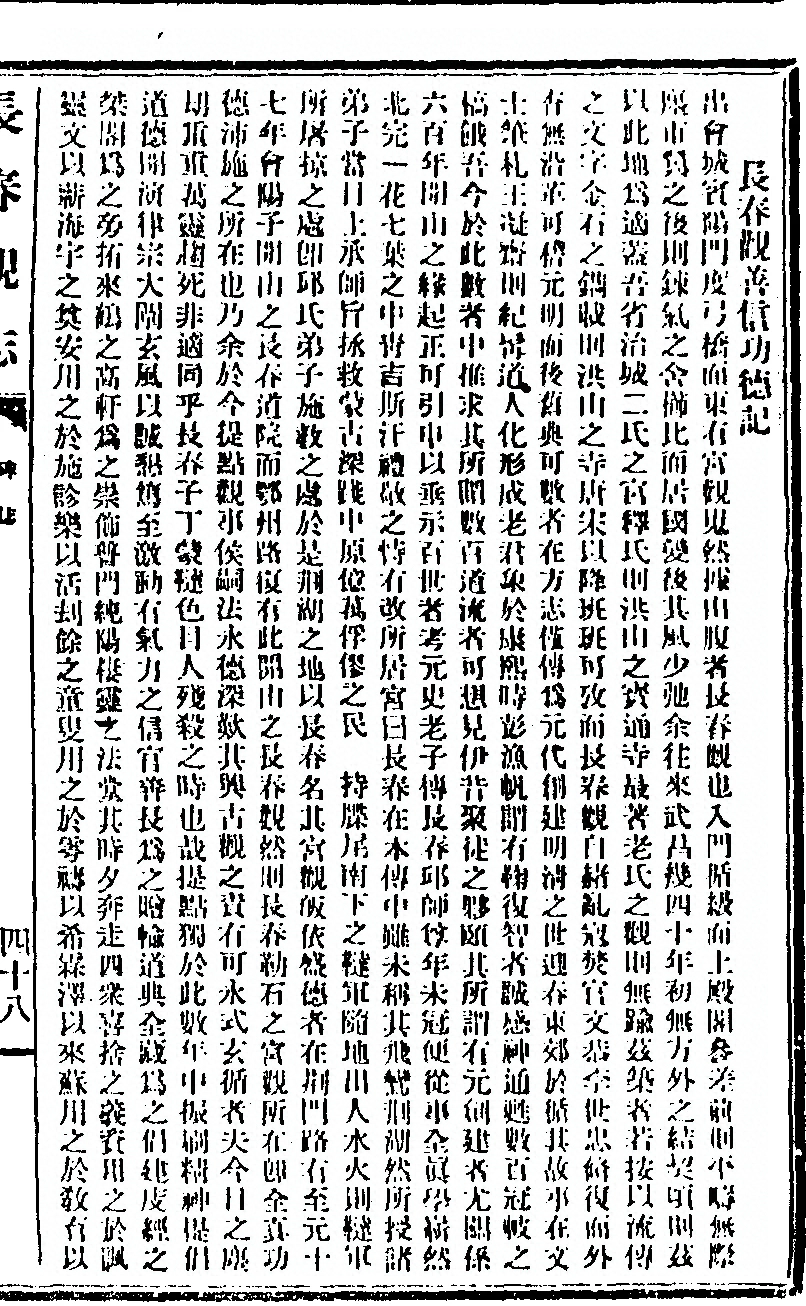 長春觀善信功德記
出會城賓陽門度弓橋而東有宮觀鬼然據山腹者長春觀也入門階級而上殿閣參差前則平疇無際
市為之後則鍊氣之舍櫛比而居國變後其風少弛余往來武昌幾四十年初無方外之結契頃則茲
以此地為適蓋吾省治城二氏之宮釋氏則洪山之寶通寺最著老氏之觀則無踰茲築者若按以流傳
之文字金石之鐫則洪山之寺唐宋以降班班可攷而長春觀自赭亂寇焚官文恭李世忠修復而外
存無沿革可稽元明而後舊典可數者在方志僅傳為元代創建明清之世迎春東郊於循其故事在文
士筆札王凝齋則紀詧道人化形成老君象於康熙時彭漁帆謂有鞠復智者誠感神通甦數百冠帔之
槁餓吾今於此數者中推求其所聞數百道流者可想見伊昔聚徒之夥頤其所謂有元創建者尤關係
六百年開山之緣起正可引申以垂示百世者考元史老子傳長春邱師修年未冠便從事全眞學嶄然
北完一花七葉之中曾吉斯汗禮敬之特有改所居宮曰長春在本傳中雖未稱其飛鸞荆湖然所授諸
弟子當日上承師旨拯救蒙古深踐中原億萬俘僇之民 持牒居南下之韃軍隨地出人水火則韃軍
所屠掠之處即邱氏弟子施教之處於是荆湖之地以長春名其宮觀皈依然德者在荆門路有至元十
七年會陽子開山之長春道院而鄂州路復有此開山之長春觀然則長春勒石之宮觀所在即全真功
德沛施之所在也乃余於今提點觀事侯嗣法永德深歎其興古觀之責有可永式玄循者夫今日之塵
劫重重萬靈趨死非適同乎長春子丁蒙韃色目人殘殺之時也哉提點獨於此數年中振刷精神提倡
道德開演律宗大闡玄風以誠懇篤至激動有氣力之信官善長為之贈輸道典全藏為之倡建庋經之
傑閣為之旁拓來鶴之高軒為之崇飾普門純陽棲靈之法堂其時夕奔走四衆喜捨之義資用之於諷
靈文以蘄海宇之奠安用之於施診藥以活刦餘之童叟用之於雩禱以希霖澤以來蘇用之於教育以
長春觀志
碑誌
四十八